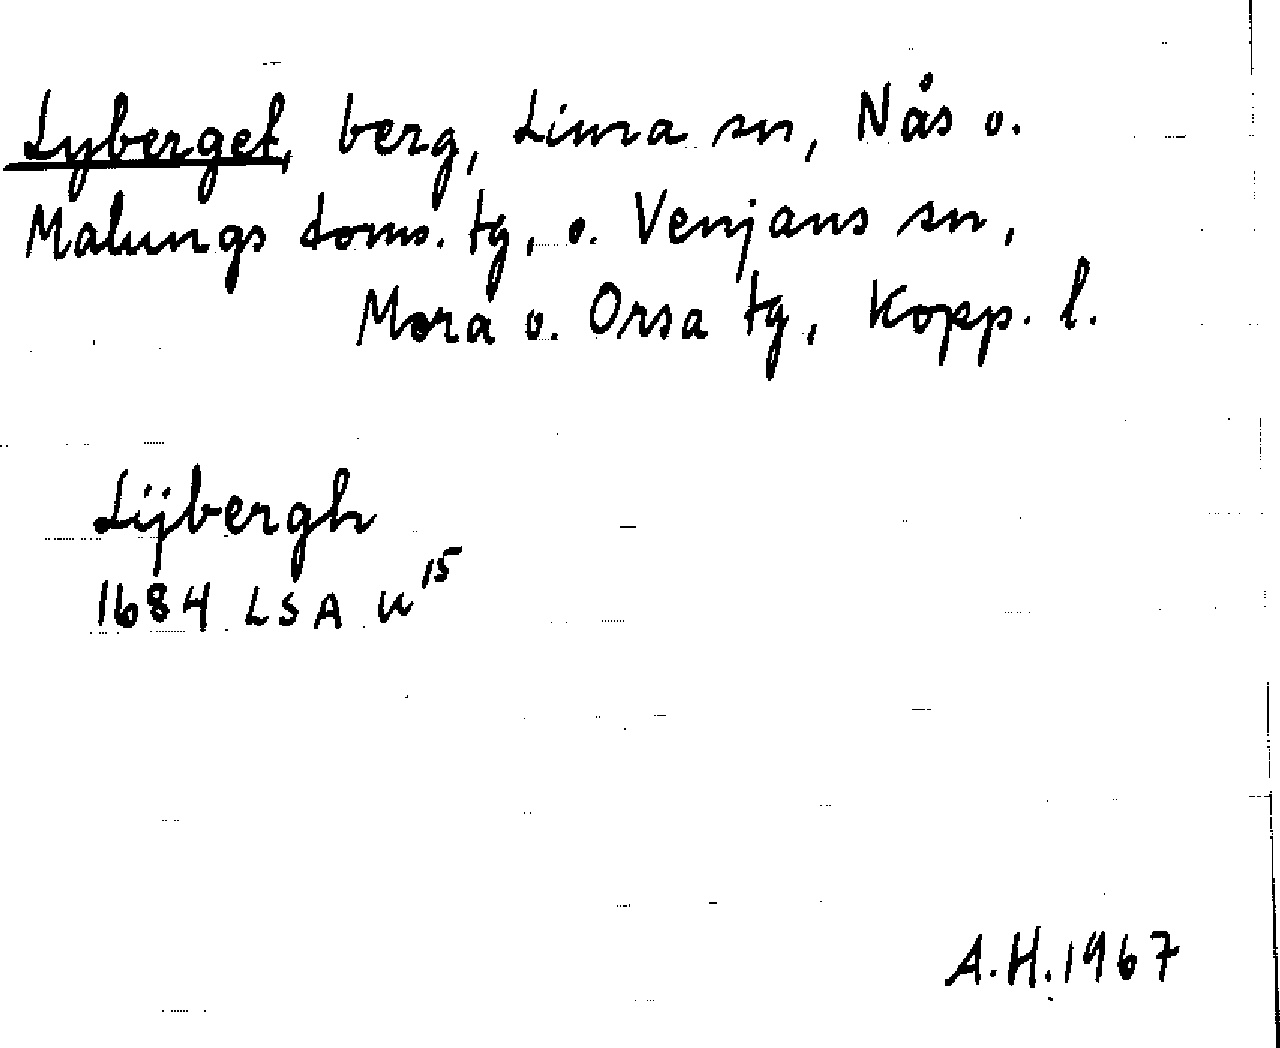 Lyberget, berg, Lima sn, Nås o.
Malungs doms. tg, o. Venjans sn,
Mora o. Orsa tg, Kopp. l.
Lÿbergh
1684 LSA W 15
A.H. 1967